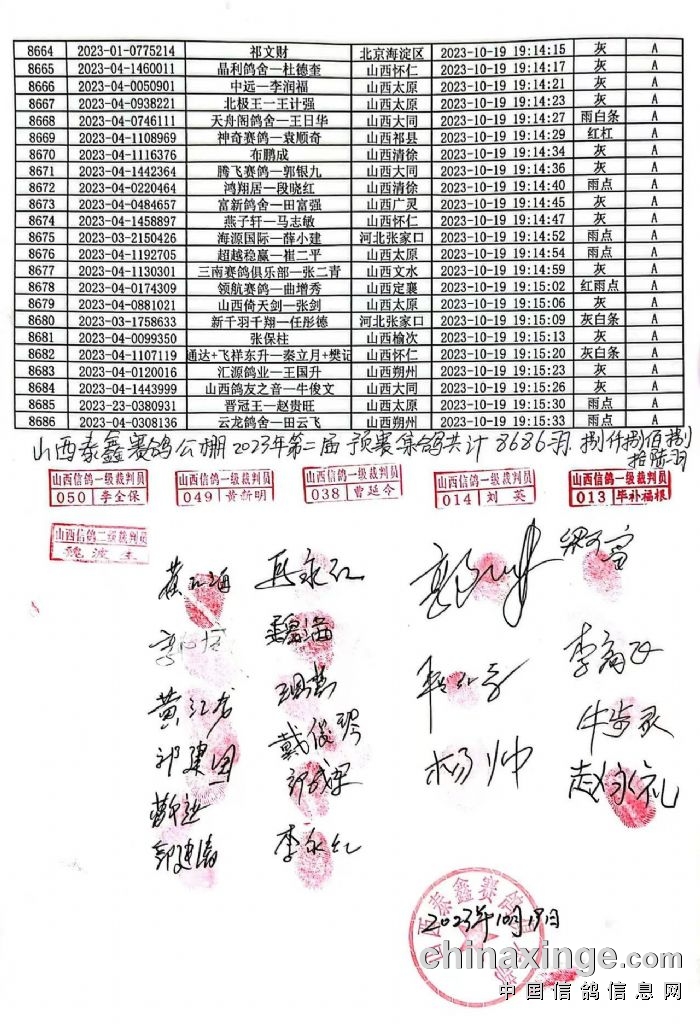 8664 2023-01-0775214 祁文财 北京海淀区 2023-10-19 19:14:15 灰 A
8665 2023-04-1460011 晶利鸽舍—杜德奎 山西怀仁 2023-10-19 19:14:17 灰 A
8666 2023-04-0050901 中远—李润福 山西太原 2023-10-19 19:14:21 灰 A
8667 2023-04-0938221 北极王—王计强 山西太原 2023-10-19 19:14:23 灰 A
8668 2023-04-0746111 天舟阁鸽舍—王日华 山西大同 2023-10-19 19:14:27 雨白条 A
8669 2023-04-1108969 神奇赛鸽—袁顺奇 山西祁县 2023-10-19 19:14:29 红杠 A
8670 2023-04-1116376 布鹏成 山西清徐 2023-10-19 19:14:34 灰 A
8671 2023-04-1442364 腾飞赛鸽—郭银九 山西大同 2023-10-19 19:14:36 灰 A
8672 2023-04-0220464 鸿翔居—段晓红 山西清徐 2023-10-19 19:14:40 雨点 A
8673 2023-04-0484657 富新鸽舍—田富强 山西广灵 2023-10-19 19:14:45 灰 A
8674 2023-04-1458897 燕子轩—马志敏 山西怀仁 2023-10-19 19:14:47 灰 A
8675 2023-03-2150426 海源国际—薛小建 河北张家口 2023-10-19 19:14:52 雨点 A
8676 2023-04-1192705 超越稳赢—崔二平 山西太原 2023-10-19 19:14:54 雨点 A
8677 2023-04-1130301 三南赛鸽俱乐部—张二青 山西文水 2023-10-19 19:14:59 灰 A
8678 2023-04-0174309 领航赛鸽—曲增秀 山西定襄 2023-10-19 19:15:02 红雨点 A
8679 2023-04-0881021 山西倚天剑—张剑 山西太原 2023-10-19 19:15:06 灰 A
8680 2023-03-1758633 新千羽千翔—任彤德 河北张家口 2023-10-19 19:15:09 灰白条 A
8681 2023-04-0099350 张保柱 山西榆次 2023-10-19 19:15:13 灰 A
8682 2023-04-1107119 通达+飞祥东升—秦立月+樊记 山西怀仁 2023-10-19 19:15:20 灰白条 A
8683 2023-04-0120016 汇源鸽业—王国升 山西朔州 2023-10-19 19:15:23 灰 A
8684 2023-04-1443999 山西鸽友之音—牛俊文 山西大同 2023-10-19 19:15:26 灰 A
8685 2023-23-0380931 晋冠王—赵贵旺 山西太原 2023-10-19 19:15:30 雨点 A
8686 2023-04-0308136 云龙鸽舍—田云飞 山西朔州 2023-10-19 19:15:33 雨点 A
山西泰鑫赛鸽公棚2023年第二届预赛集鸽共计8686羽.捌仟捌佰捌
拾陆羽
山西信鸽一级裁判员 山西信鸽一级裁判员 山西信鸽一级裁判员 山西信鸽一级裁判员 山西信鸽一级裁判员
050 李全保 049 黄新明 038 曹延令 014 刘英 013 毕补福根
山西信鸽二级裁判员
魏波
李永红
黄江龙
戴俊琴
祁建国
杨帅
赵永礼
郭建清
山西泰鑫赛鸽
2023年10月19日
chinaxinge.com
中国信鸽信息网